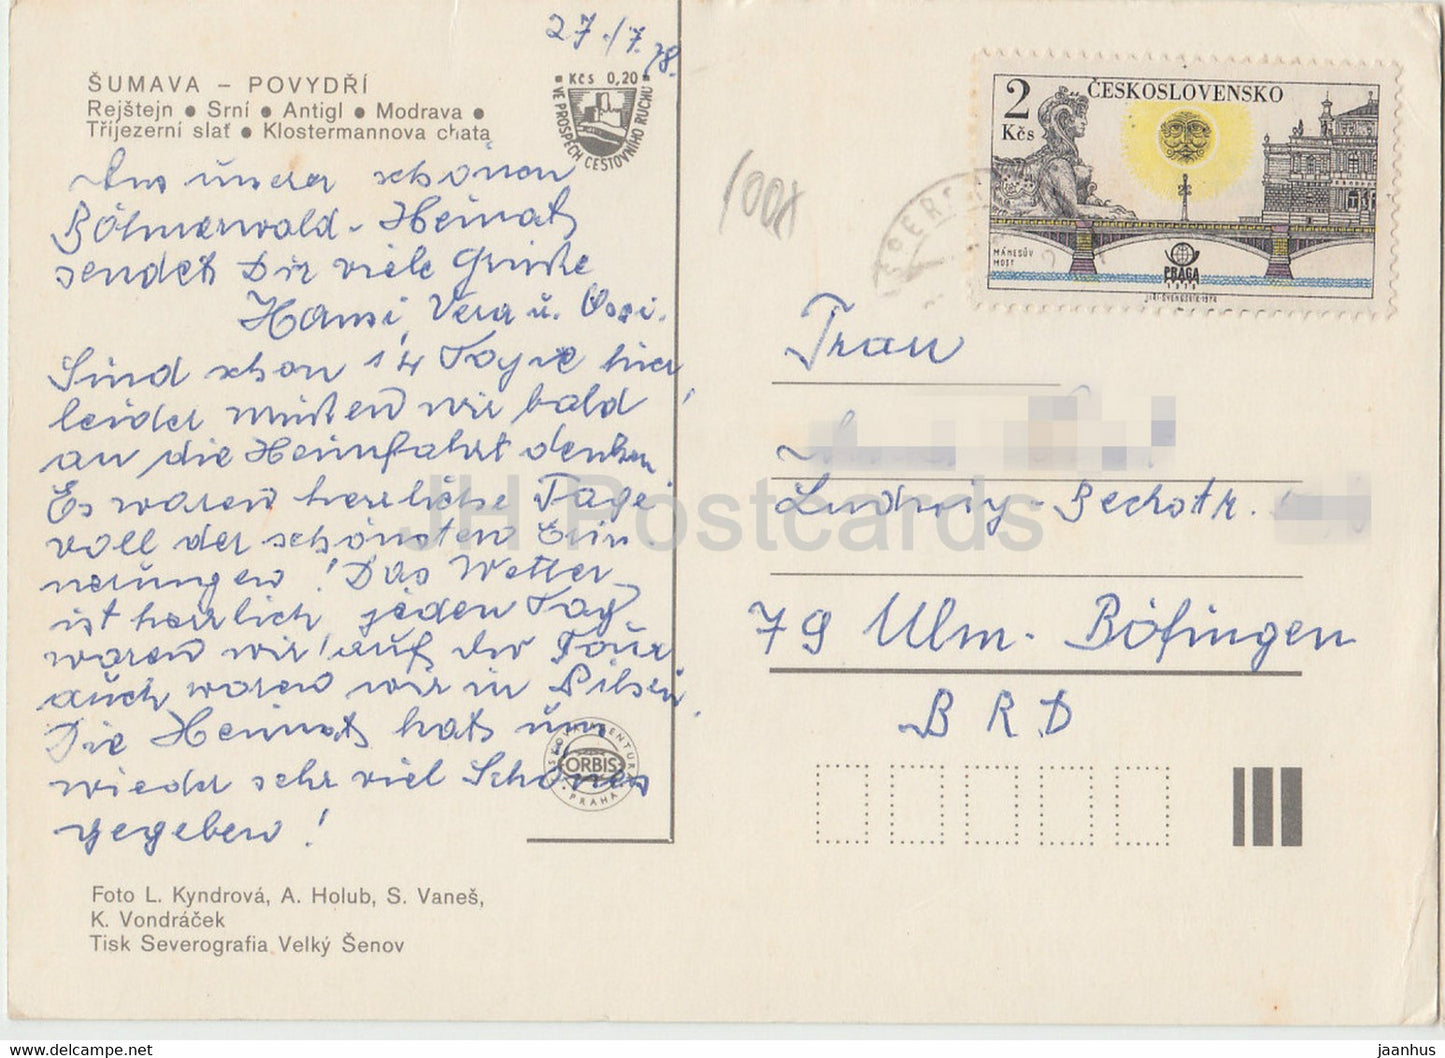 27./7.78.
ŠUMAVA – POVYDŘÍ
Rejštejn ● Srní ● Antigl ● Modrava ●
Tříjezerní slať ● Klostermannova chata
Kčs 0,20
VE PROSPĚCH CESTOVNÍHO RUCHU
Aus unser schönen
Böhmerwald-Heimat
sendet Dir viele Grüße
Hansi, Vera u. Ossi.
Sind schon 14 Tage hier,
leider müßen wir bald
an die Heimfahrt denken
Es waren herrliche Tage
voll der schönsten Erin
nerungen! Das Wetter
ist herrlich jeden Tag
waren wir auf der Tour
auch waren wir in Pilsen.
Die Heimat hat uns
wieder sehr viel Schönes
gegeben!
ORBIS
PRAHA
Foto L. Kyndrová, A. Holub, S. Vaneš,
K. Vondráček
Tisk Severografia Velký Šenov
2
Kčs
ČESKOSLOVENSKO
MÁNESŮV
MOST
PRAGA
1978
Frau
Ludwig-Beckstr.
79 Ulm-Böfingen
BRD
JH Postcards
www.delcampe.net
jaanhus